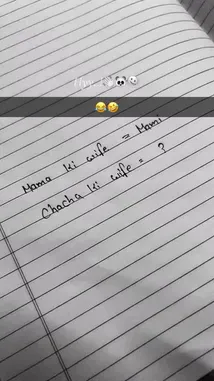 😂🤣
Mama ki wife = Mami
Chacha ki wife = ?